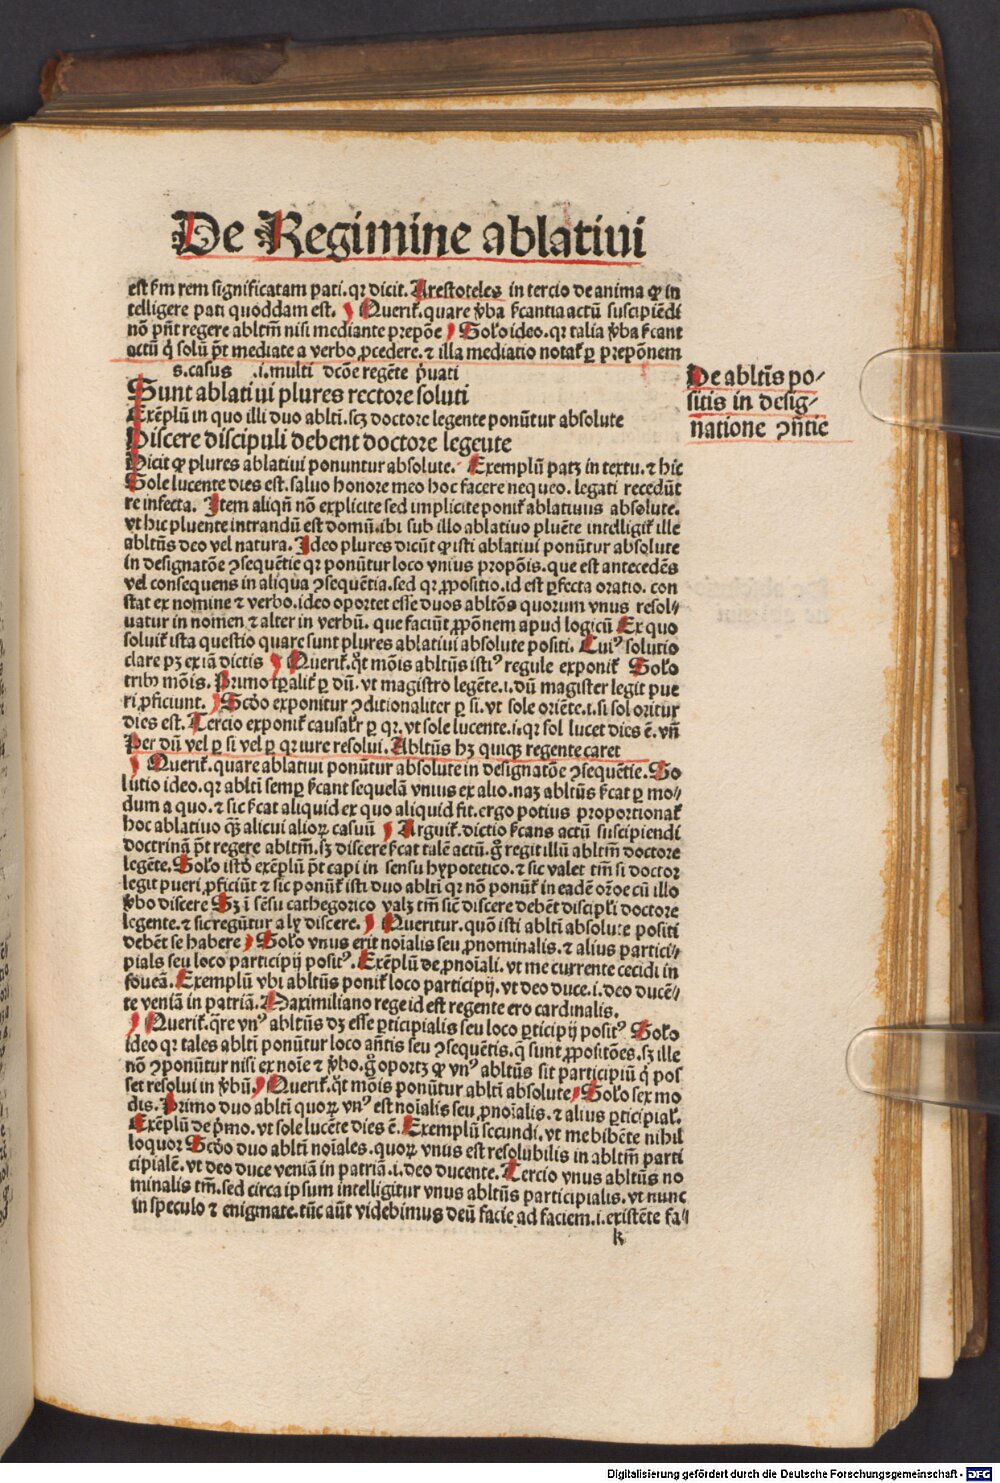 De Regimine ablatiui
est ẜm rem significatam pati. qꝛ dicit. Arestoteles in tercio de anima ꝙ in
telligere pati quoddam est. Querit᷑. quare v̓ba ẜcantia actū suscipiēdi
nō pn̄t regere abltm̄ nisi mediante prepōe Solo ideo. qꝛ talia v̓ba ẜcant
actū q̇ solū pt̄ mediate a verbo ꝓcedere. ⁊ illa mediatio notat᷑ ꝑ prepōnem
s. casus .i. multi dcōe regēte pͥuati
Sunt ablatiui plures rectore soluti
Exēplū in quo illi duo ablti. scꝫ doctore legente ponūtur absolute
Discere discipuli debent doctore legente
Dicit ꝙ plures ablatiui ponuntur absolute. Exemplū patꝫ in textu. ⁊ hic
Sole lucente dies est. saluo honore meo hoc facere nequeo. legati recedūt
re infecta. Item aliqn̄ nō explicite sed implicite ponit᷑ ablatiuus absolute.
vt hic pluente intrandū est domū. ibi sub illo ablatiuo pluēte intelligit᷑ ille
abltūs deo vel natura. Ideo plures dicūt ꝙ isti ablatiui ponūtur absolute
in designatōe ꝯsequētie qꝛ ponūtur loco vnius propōis. que est antecedēs
vel consequens in aliqua ꝯsequētia. sed qꝛ ꝓpositio. id est ꝑfecta oratio. con
stat ex nomine ⁊ verbo. ideo oportet esse duos abltōs quorum vnus resol⸗
uatur in nomen ⁊ alter in verbū. que faciūt ꝓpōnem apud logicū Ex quo
soluit᷑ ista questio quare sunt plures ablatiui absolute positi. Cuiꝰ solutio
clare pꝫ ex iā dictis Querit᷑. qͦt mōis abltūs istiꝰ regule exponit᷑ Solo
tribꝫ mōis. Primo tꝑalit᷑ ꝑ dū. vt magistro legēte. i. dū magister legit pue
ri ꝓficiunt. Scdo exponitur ꝯditionaliter ꝑ si. vt sole oriēte. i. si sol oritur
dies est. Tercio exponit᷑ causalr̄ ꝑ qꝛ. vt sole lucente. i. qꝛ sol lucet dies ē. vn̄
Per dū vel ꝑ si vel ꝑ qꝛ iure resolui. Abltūs hꝫ quicqꝫ regente caret
Querit᷑. quare ablatiui ponūtur absolute in designatōe ꝯsequētie. So
lutio ideo. qꝛ ablti semꝑ ẜcant sequelā vnius ex alio. naꝫ abltūs ẜcat ꝑ mo⸗
dum a quo. ⁊ sic ẜcat aliquid ex quo aliquid fit. ergo potius proportionat᷑
hoc ablatiuo qꝫ̄ alicui alioꝝ casuū Arguit᷑. dictio ẜcans actū suscipiendi
doctrinā pt̄ regere abltm̄. sꝫ discere ẜcat talē actū. gͦ regit illū abltm̄ doctore
legēte. Solo istd̓ exēplū pt̄ capi in sensu hypotetico. ⁊ sic valet tm̄ si doctor
legit pueri ꝓficiūt ⁊ sic ponūt᷑ isti duo ablti qꝛ nō ponūt᷑ in eadē or̄oe cū illo
v̓bo discere Sꝫ ī sēsu cathegorico valꝫ tm̄ sic̄ discere debēt discipl̄i doctore
legente. ⁊ sic regūtur a ly discere. Queritur. quō isti ablti absolute positi
debēt se habere Solo vnus erit noīalis seu ꝓnominalis. ⁊ alius partici⸗
pials seu loco participij positꝰ. Exēplū de ꝓnoīali. vt me currente cecidi in
foueā. Exemplū vbi abltūs ponit᷑ loco participij. vt deo duce. i. deo ducē⸗
te veniā in patriā. Maximiliano rege id est regente ero cardinalis.
Querit᷑. qr̄e vnꝰ abltūs dꝫ esse ꝑticipialis seu loco ꝑticipij positꝰ Solo
ideo qꝛ tales ablti ponūtur loco an̄tis seu ꝯsequētis. q̄ sunt ꝓpositōes. sꝫ ille
nō ꝯponūtur nisi ex noīe ⁊ v̓bo. gͦ oportꝫ ꝙ vnꝰ abltūs sit participiū q̇ pos
set resolui in v̓bū. Querit᷑. qͦt mōis ponūtur ablti absolute Solo sex mo
dis. Primo duo ablti quoꝝ vnꝰ est noīalis seu ꝓnoīalis. ⁊ alius ꝑticipial̄.
Exēplū de pͥmo. vt sole lucēte dies ē. Exemplū secundi. vt me bibēte nihil
loquor Scdo duo ablti noīales. quoꝝ vnus est resolubilis in abltm̄ parti
cipialē. vt deo duce veniā in patriā. i. deo ducente. Tercio vnus abltūs no
minalis tm̄. sed circa ipsum intelligitur vnus abltūs participialis. vt nunc
in speculo ⁊ enigmate. tūc aūt videbimus deū facie ad faciem. i. existēte fa⸗
k
De abltīs po⸗
sitis in desig⸗
natione ꝯn̄tie
Digitalisierung gefördert durch die Deutsche Forschungsgemeinschaft - DFG